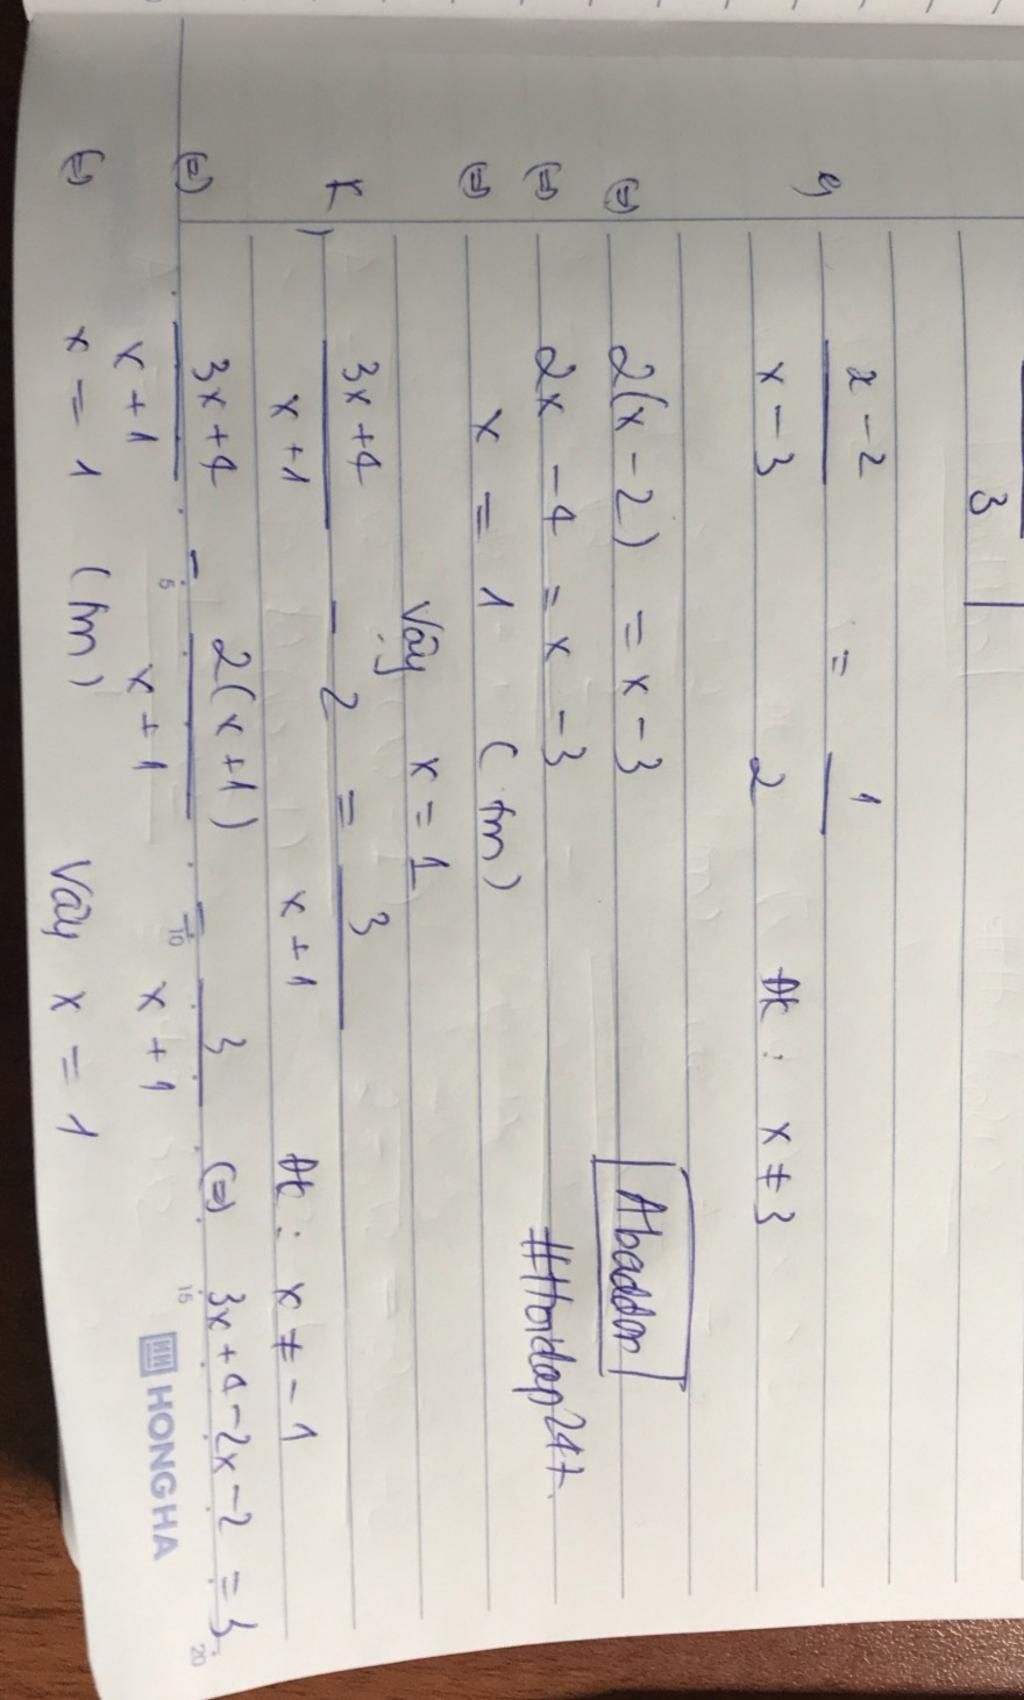 3
g) x - 2 / x - 3 = 1 / 2 đk : x ≠ 3
(=) 2(x - 2) = x - 3
(=) 2x - 4 = x - 3
(=) x = 1 (tm)
Vậy x = 1
Abaddon
#Hoidap247.
k) 3x + 4 / x + 1 - 2 = 3 / x + 1 đk : x ≠ - 1
(=) 3x + 4 / x + 1 - 2(x + 1) / x + 1 = 3 / x + 1 (=) 3x + 4 - 2x - 2 = 3
(=) x = 1 (tm) Vậy x = 1
5 10 15 20
HONG HA